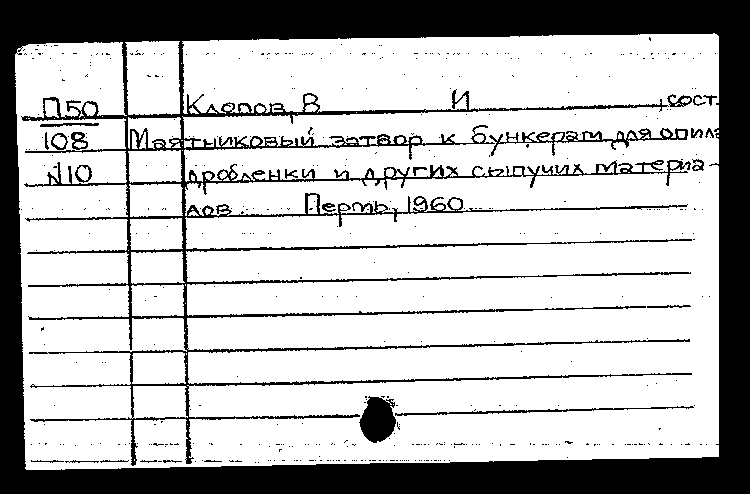 П50 Клепов, В И , сост.
108 Маятниковый затвор к бункерам для опила
N10 дробленки и других сыпучих материа-
лов Пермь, 1960